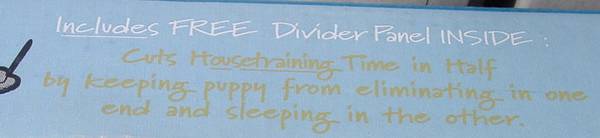 Includes FREE Divider Panel INSIDE :
Cuts Housetraining Time in Half
by keeping puppy from eliminating in one
end and sleeping in the other.